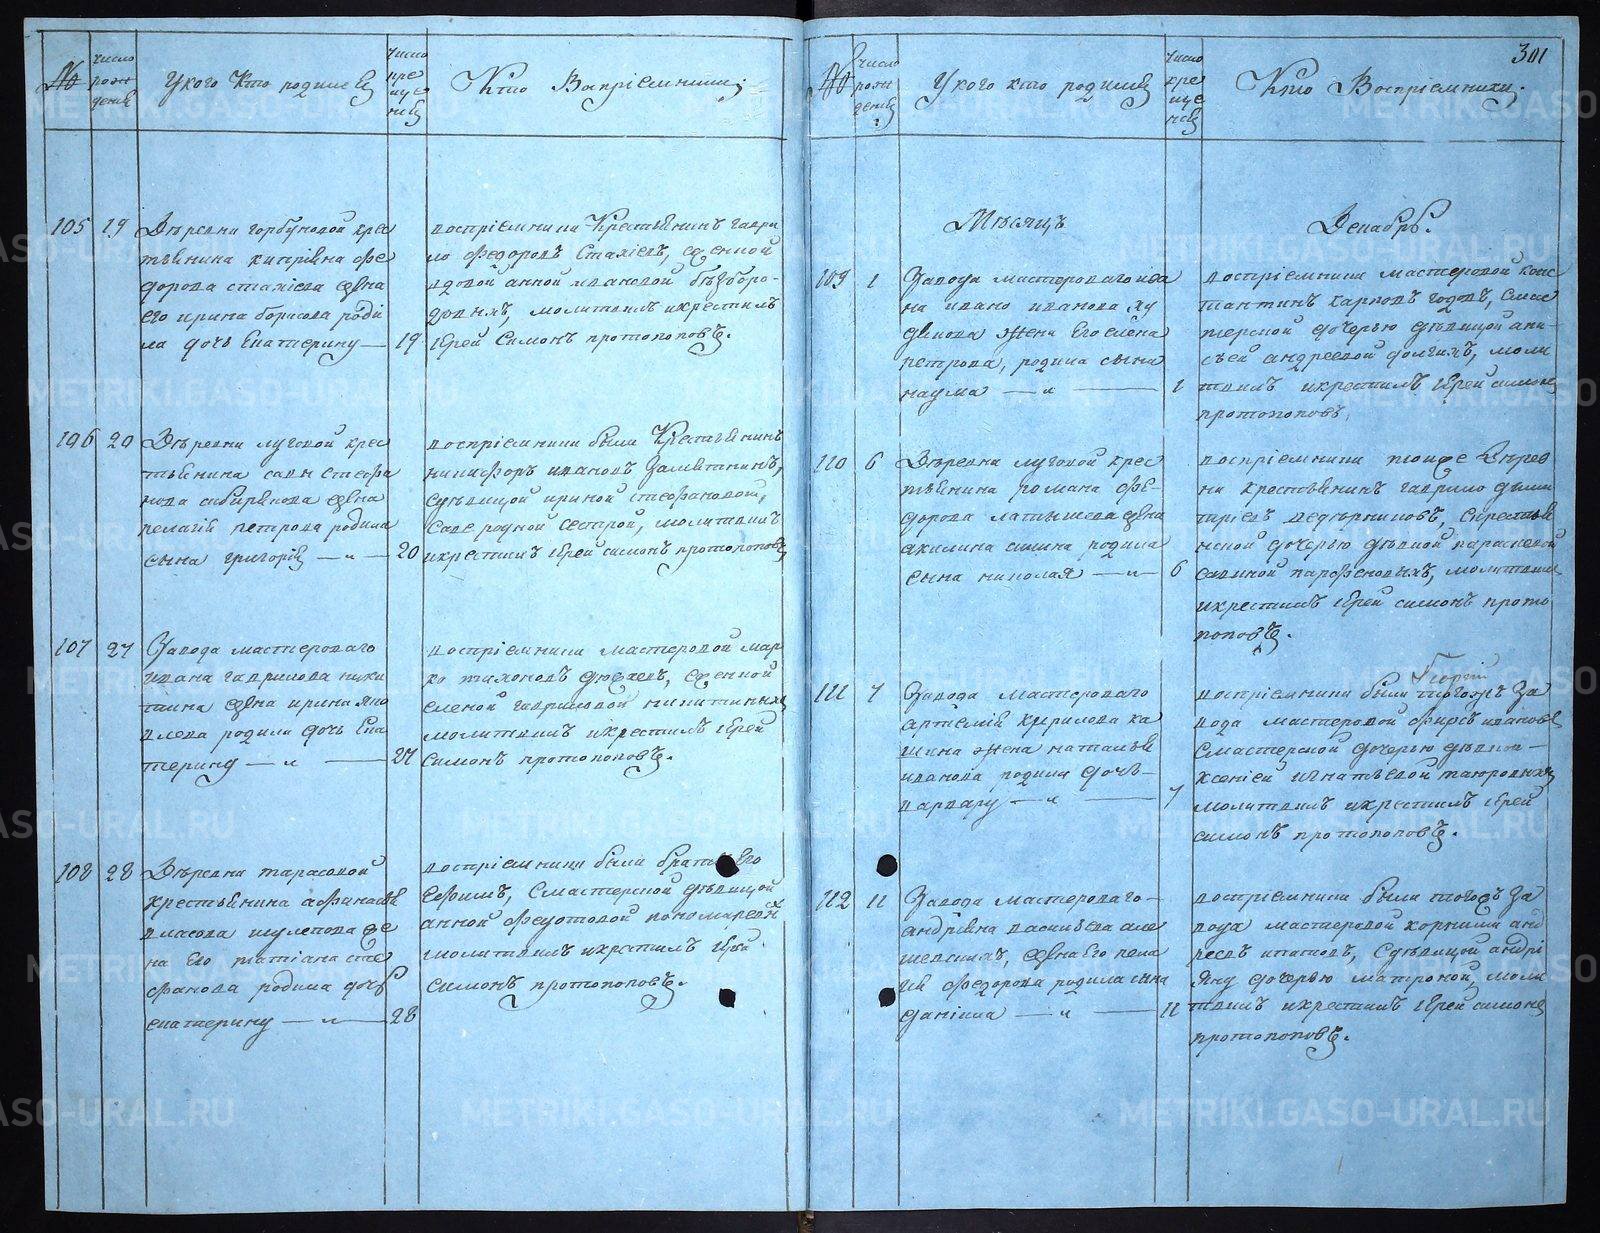 №
число рождения
У кого кто родился
число крещения
Кто Восприемники
105 19 Деревни горбуновой крес
тьянина киприяна фе
дорова стахиева жена
его ирина борисова роди
ла дочь Екатерину — 19
восприемники Крестьянинъ гаври
ло Федоровъ Стахиевъ, сженкой
вдовой анной ивановой безборо-
довыхъ, молитвилъ икрестилъ
Iерей Симонъ протопоповъ.
106 20 Деревни луговой крес
тьянина савы стефа
нова сибирякова жена
пелагiя петрова родила
сына григорiя — 20
восприемники были Крестьянинъ
никифоръ ивановъ
сдевицой ириной стефановой,
Саве родной сестрой, молитвилъ
икрестилъ Iерей симонъ протопоповъ
107 27 Завода мастероваго
ивана гаврилова ники
тина жена ирина яко
влева родила дочь Ека
терину — 27
восприемники мастеровой мар
ко тихоновъ сженкой
еленой гавриловой никитиныхъ
молитвилъ икрестилъ Iерей
Симонъ протопоповъ.
108 28 Деревни тарасовой
крестьянина афанасья
власова шулепова же
на Его татiана сте
фанова родила дочь
екатерину — 28
восприемники были братъ Его
Ефимъ, Смастерской девицой
анной Федотовой пономаревыхъ
молитвилъ икрестилъ Iерей
Симонъ протопоповъ.
301
№
число рождения
У кого кто родился
число крещения
Кто Восприемники.
Месяцъ
Декабрь.
109 1 Завода мастероваго ива
на иванова
жена Его Елена
петрова, родила сына
наума — 1
восприемники мастеровой конс
тантинъ карповъ смас
терской дочерью девицой ани
сьей андреевой долгихъ, моли
твилъ икрестилъ Iерей симонъ
протопоповъ.
110 6 Деревни луговой крес
тьянина романа фе-
дорова латышева жена
акилина родила
сына николая — 6
восприемники тоиже Дерев
ни крестьянинъ гаврило дыми
трiевъ ведерниковъ, Скрестья
нской дочерью девкой парасковьей
савиной парфеновыхъ, молитвилъ
икрестилъ Iерей симонъ прото
поповъ.
111 7 Завода мастероваго
артемiя кирилова ка
шина жена наталья
иванова родила дочь-
варвару — 7
Георгiй
восприемники были тогожъ За
вода мастеровой фирсъ ивановъ
Смастерской дочерью девкой —
ксенiей игнатьевой
молитвилъ икрестилъ Iерей
симонъ протопоповъ.
112 11 Завода мастероваго-
андрiяна васильева
жена Его пела
гiя федорова родила сына
данiила — 11
восприемники были тогожъ За
вода мастеровой корнили анд
реевъ Сдевицой андрi
яну дочерью матроной, моли
твилъ икрестилъ Iерей симонъ
протопоповъ.
METRIKI.GASO-URAL.RU